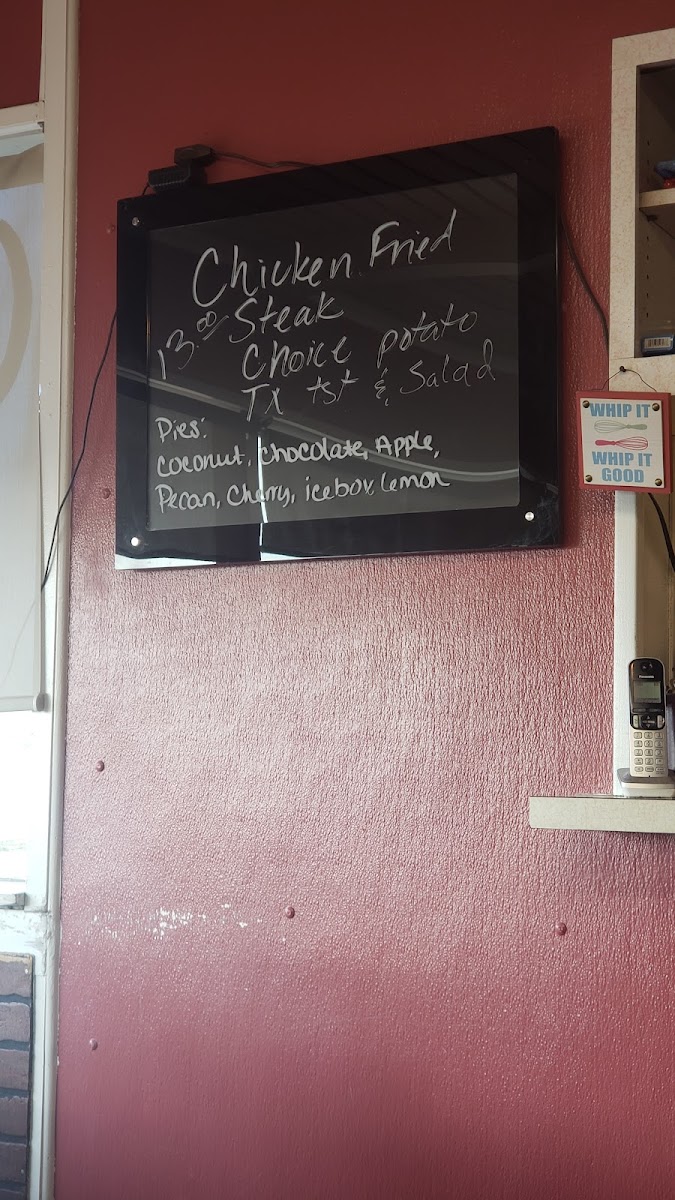 Chicken Fried
13.00 Steak
Choice potato
TX tst & Salad
Pies:
Coconut, Chocolate, Apple,
Pecan, Cherry, icebox lemon
WHIP IT
WHIP IT
GOOD
Panasonic